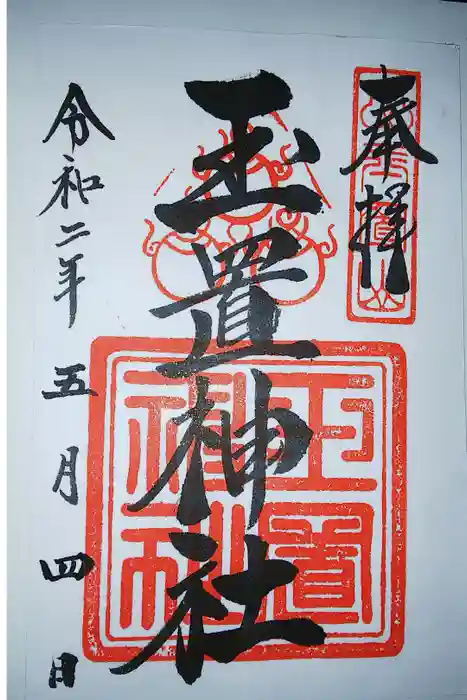 奉拝
玉置神社
玉置神社
令和二年五月四日